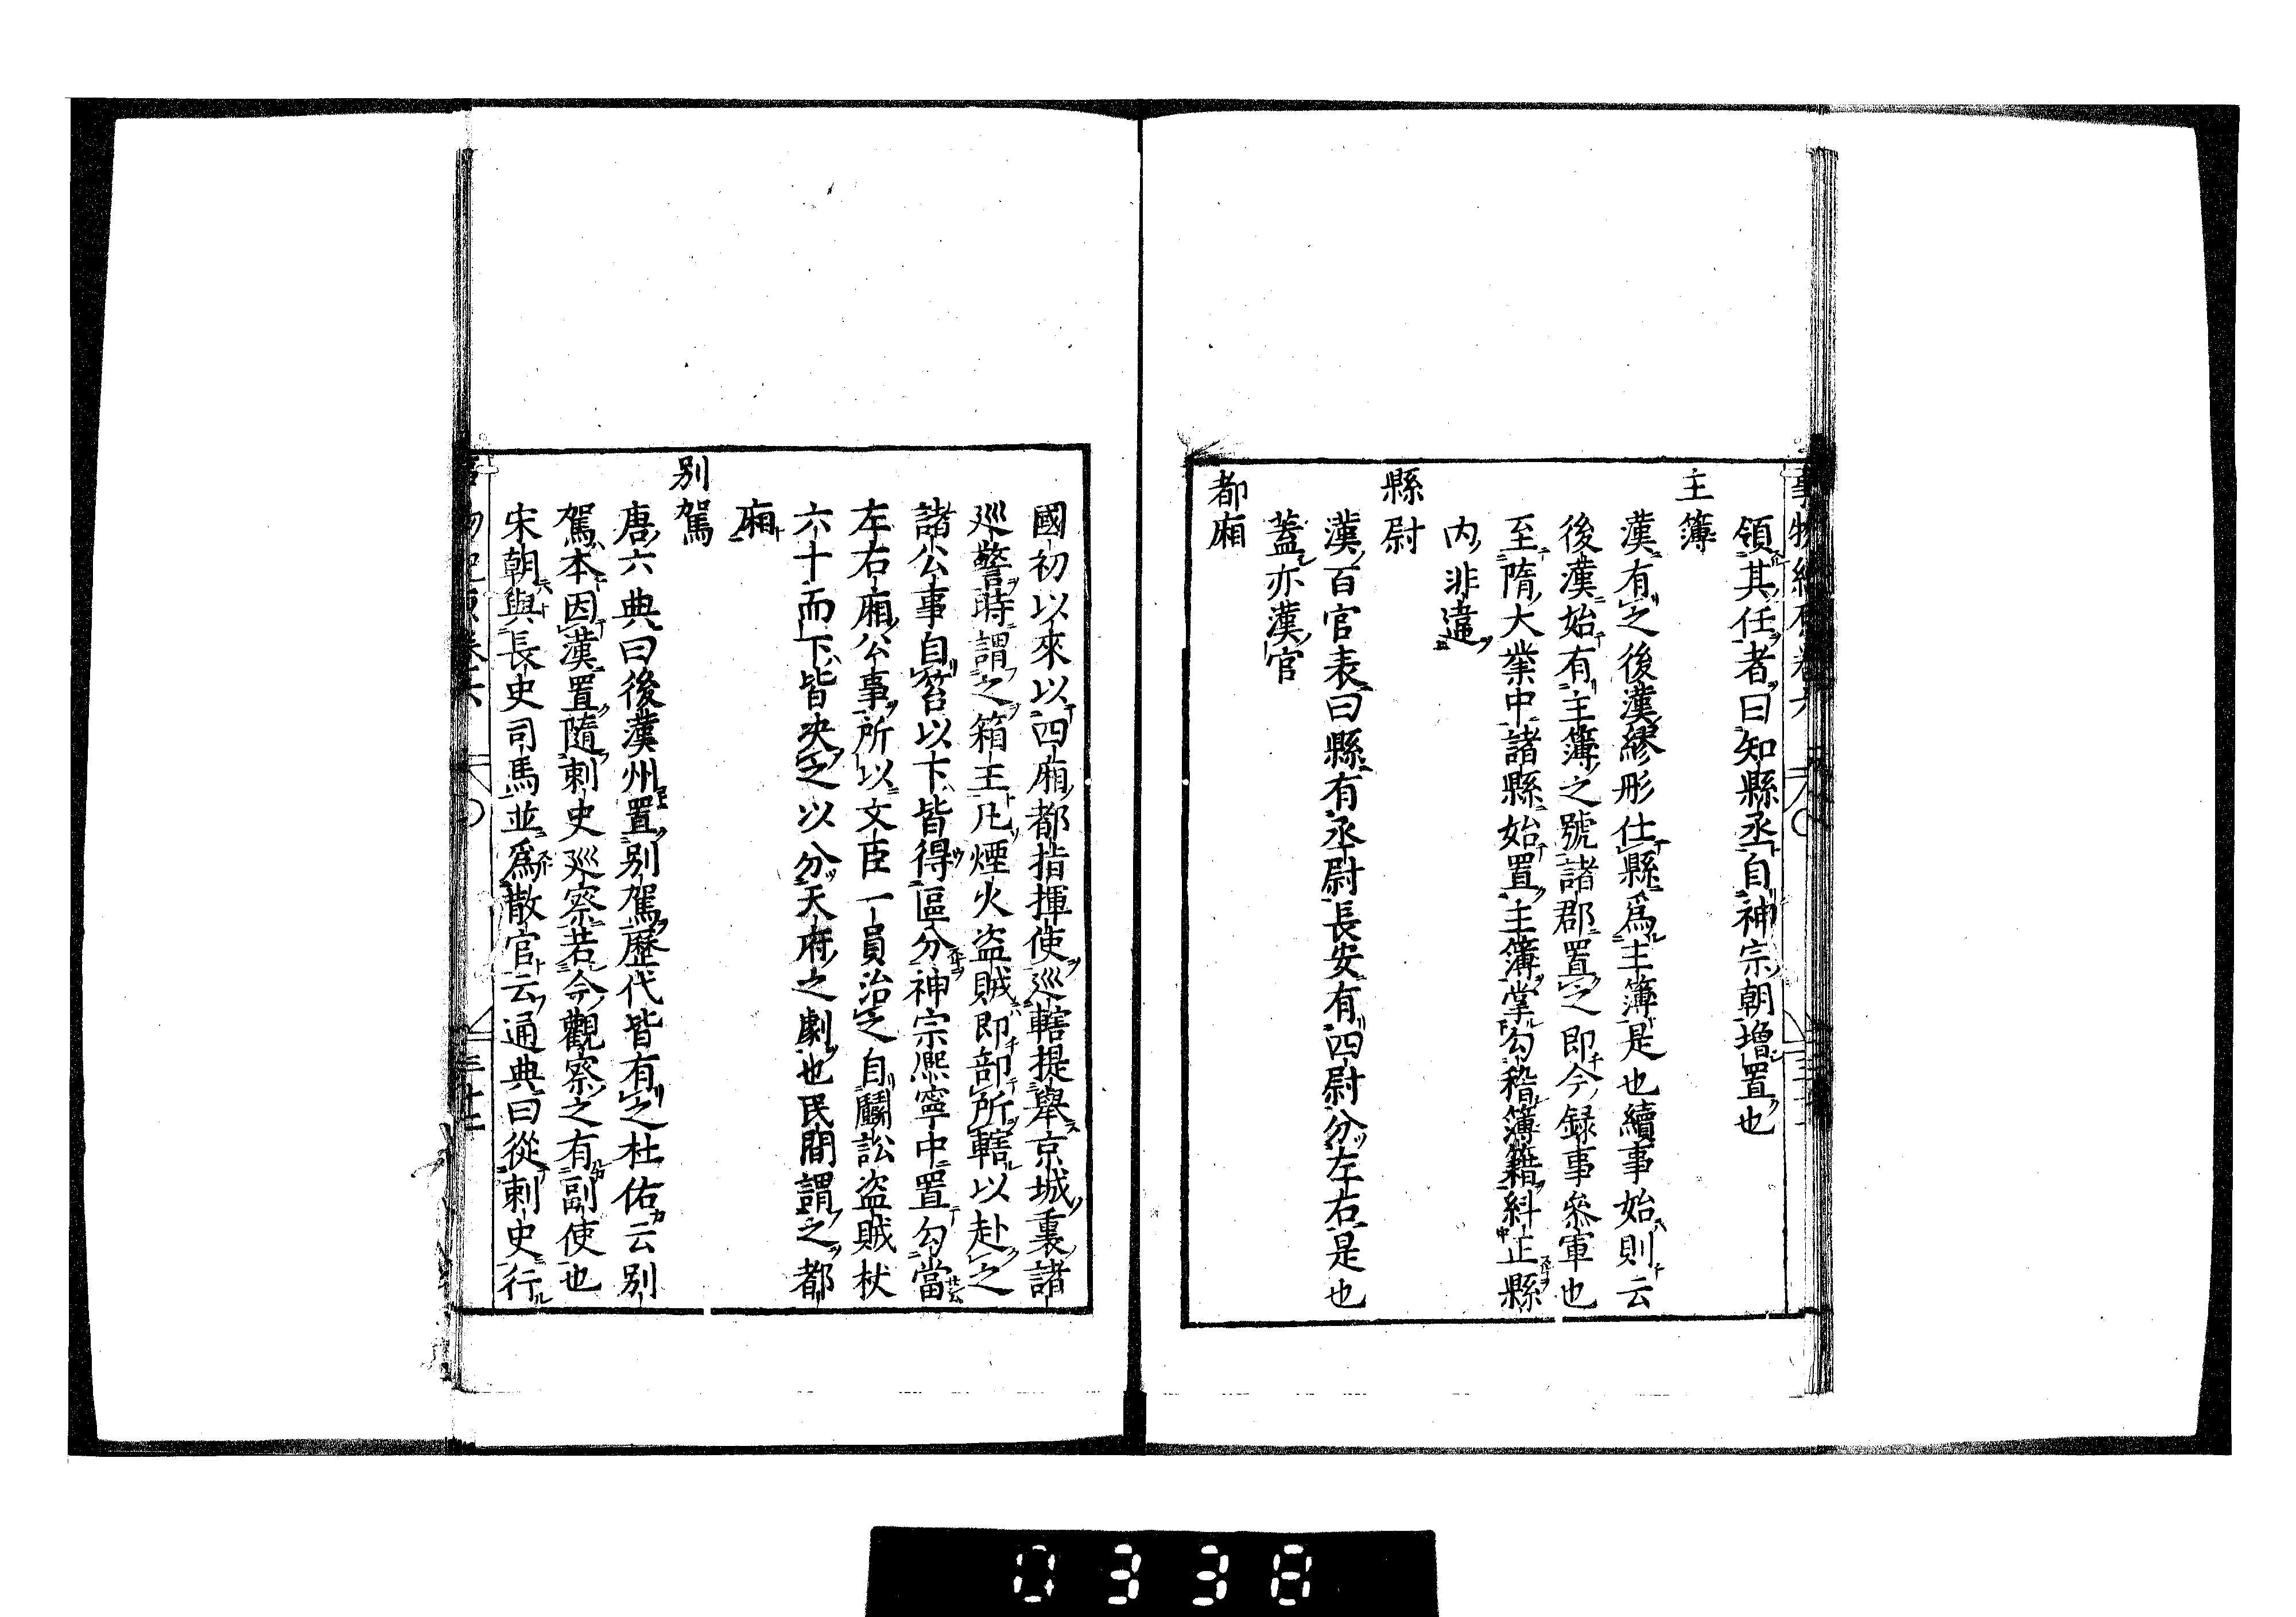 領其任者曰知縣丞自神宗朝増置也
主簿
漢有之後漢繆形仕縣爲主簿是也續事始則云
後漢始有主簿之號諸郡置之即今録事叅軍也
至隋大業中諸縣始置主簿掌勾稽簿籍糾正縣
内非違
縣尉
漢百官表曰縣有丞尉長安有四尉分左右是也
蓋亦漢官
都廂
國初以來以四廂都指揮使巡轄提舉京城裏諸
巡警時謂之箱主凡煙火盗賊即部所轄以赴之
諸公事自笞以下皆得區分神宗熈寧中置勾當
左右廂公事所以文臣一員治之自鬭訟盗賊杖
六十而下皆决之以分天府之劇也民間謂之都
廂
别駕
唐六典曰後漢州置别駕歷代皆有之杜佑云别
駕本因漢置隨刺史巡察若今觀察之有副使也
宋朝與長史司馬並爲散官云通典曰從刺史行
0338